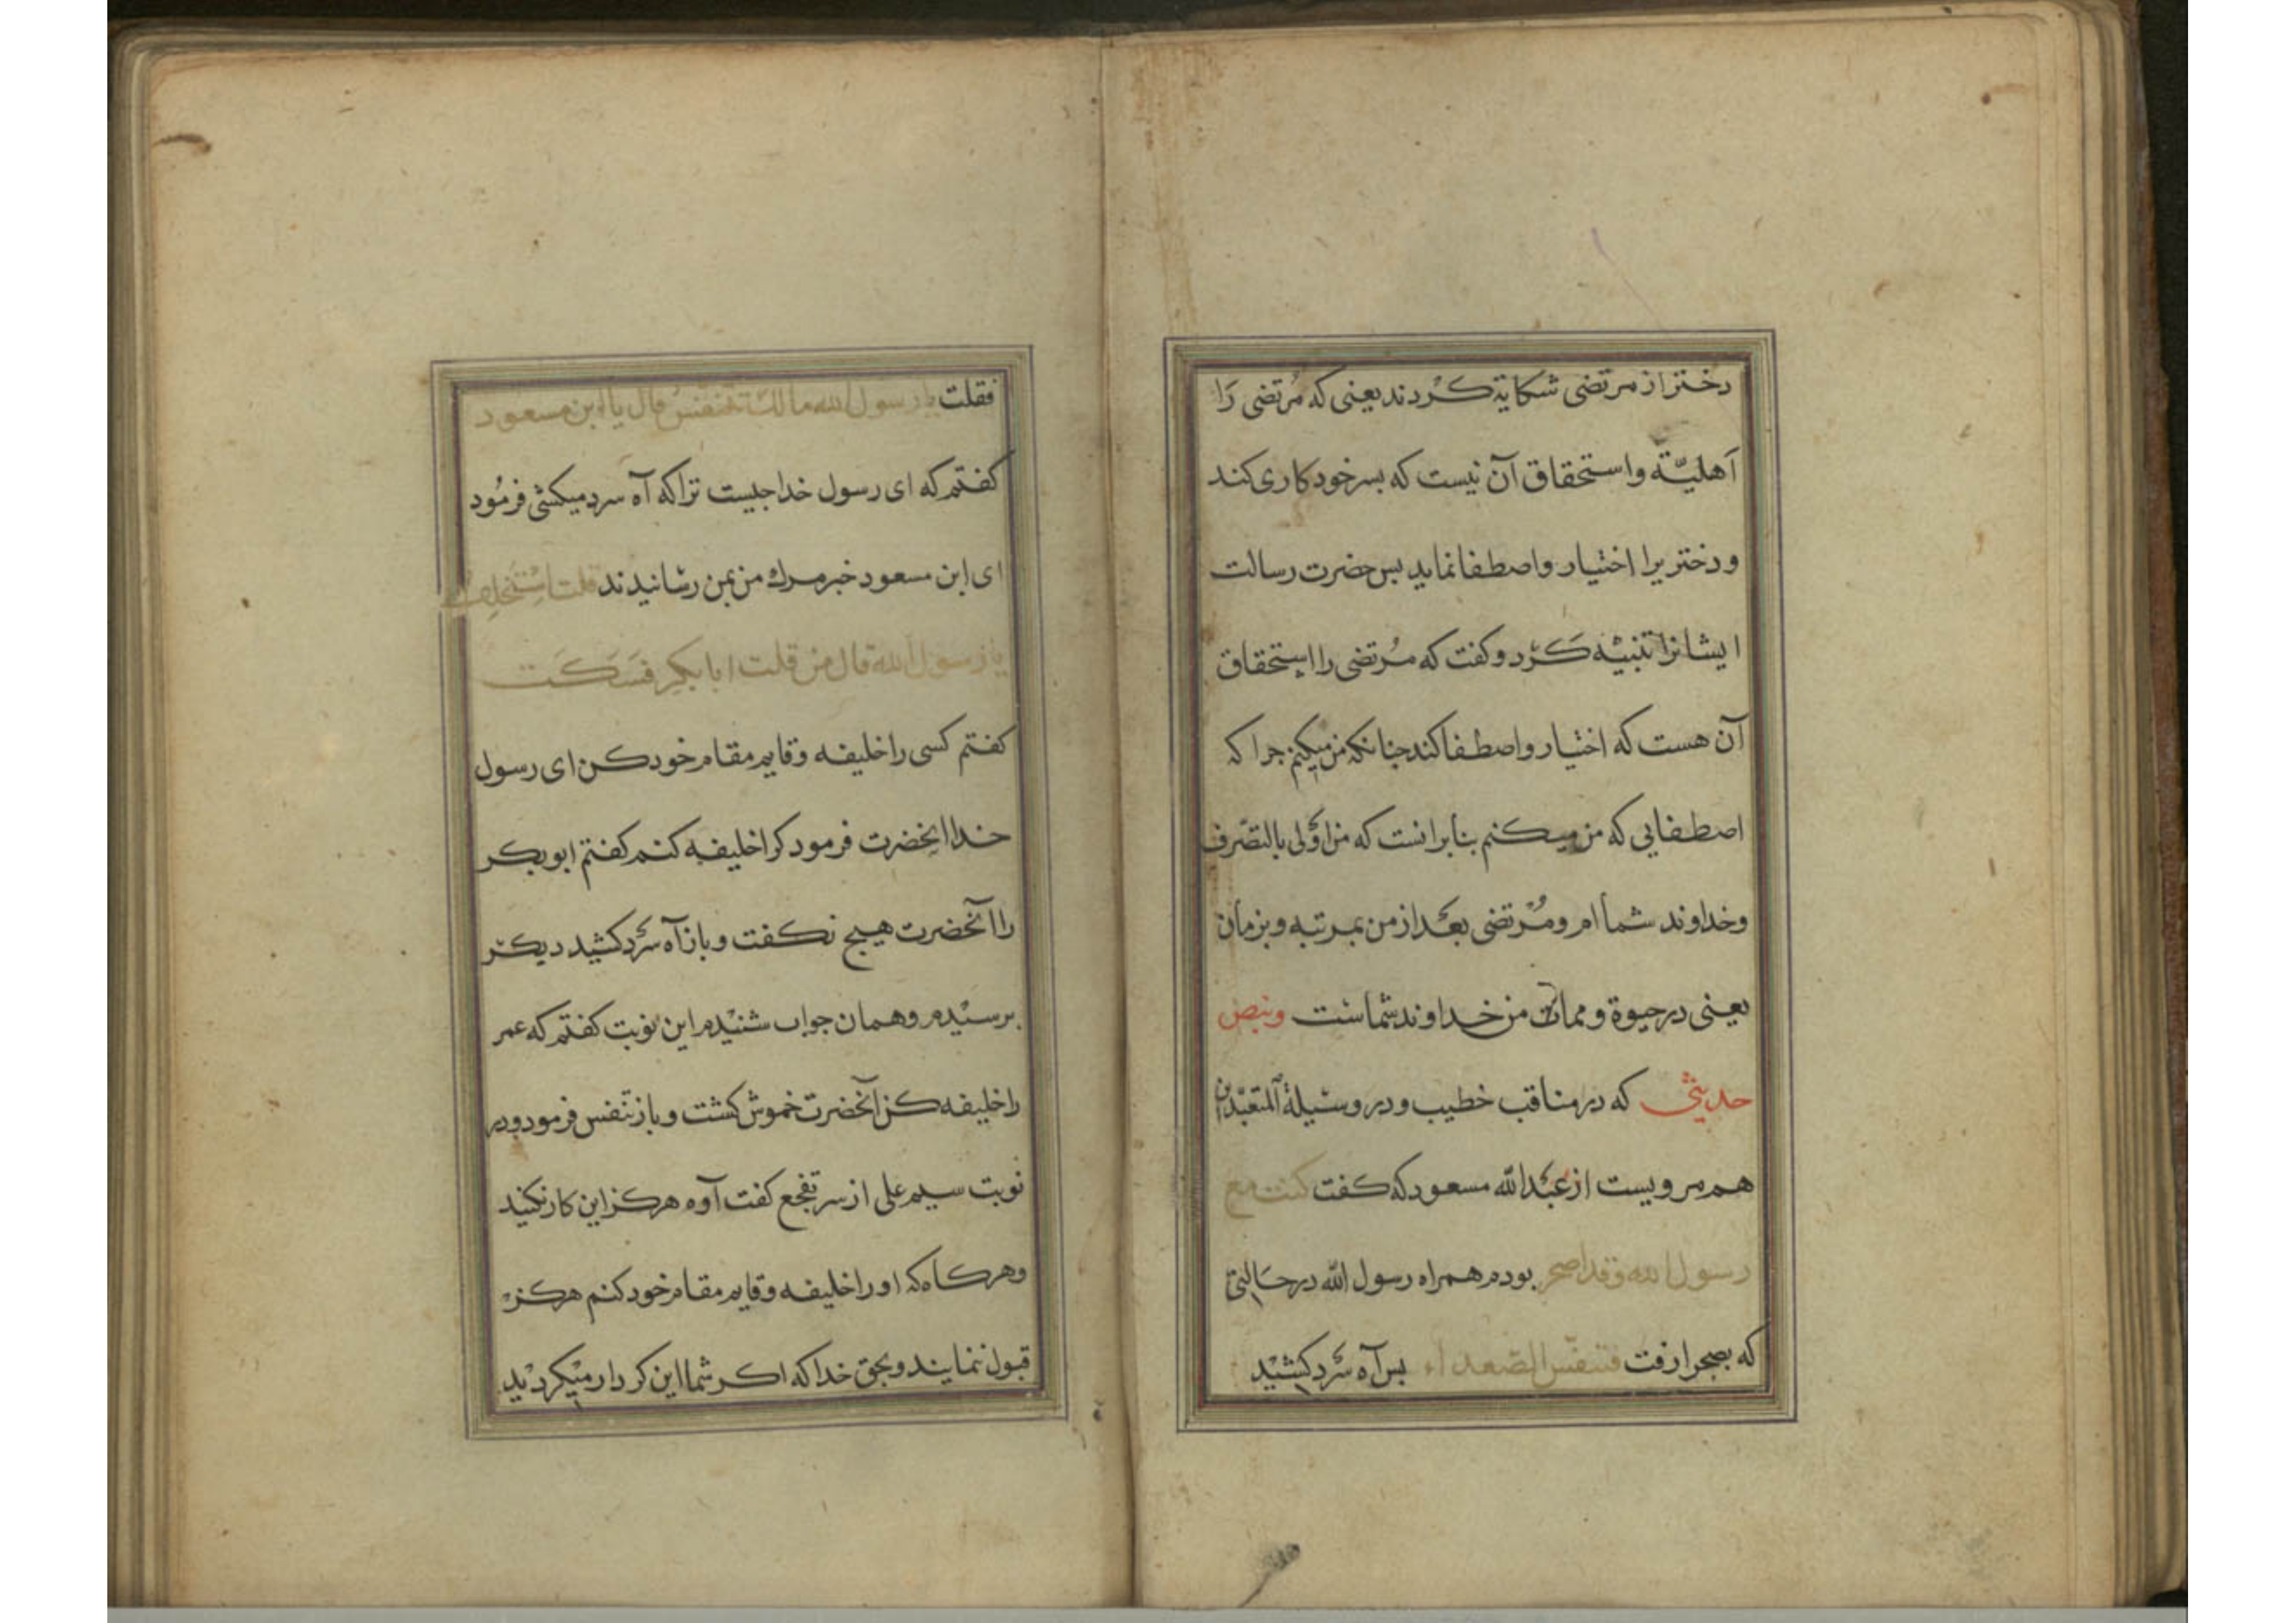 دختر از مرتضی شکایة کردند یعنی که مُرتضی رَا
اَهلیّة و استحقاق آن نیست که بسر خود کاری کند
و دختریرا اختیار و اصطفا نماید بس حضرت رسالت
ایشانرا تنبیْه کرَد و کفت که مُرتضی را استحقاق
آن هست که اختیار و اصطفا کند جنانکه من میکنم جرا که
اصطفایی که من میکنم بنابرانست که من اَوْلی بالتصّرف
و خداوند شما ام و مُرْتضی بعْد از من بمرتبه و بزمان
یعنی در حیوة و ممات من خداوند شماست و بنص
حدیثی که در مناقب خطیب و در وسیلة المتعبّدین
هم مرویست از عبْدالله مسعود که کفت کنت مع
رسول الله و قد اصحر بودم همراه رسول الله در حالتی
که بصحرا رفت فتنفّس الصّعداء بس آه سرْد کشیْد
فقلت یا رسول الله مالک تتنفّس قال یا ابن مسعود
کفتم که ای رسول خدا جیست تراکه آه سرد میکشی فرمُود
ای ابن مسعود خبر مرک من بمن رسانیدند قلت استخلف
یا رسول الله قال من قلت ابا بکر فسَکَت
کفتم کسی را خلیفه و قایم مقام خود کن ای رسول
خدا انحضرت فرمود کرا خلیفه کنم کفتم ابوبکر
را آنحضرت هیج نکفت و باز آه سرْد کشید دیکر
برسیْدم و همان جواب شنیْدم این نوبت کفتم که عمر
را خلیفه کن آنحضرت خموش کشت و باز تنفس فرمود و در
نوبت سیم علی از سر تفجع کفت آوه هرکز این کار نکنید
و هرکاه که او را خلیفه و قایم مقام خود کنم هرکز
قبول ننمایند و بحق خدا که اکر شما این کردار میْکردیْد